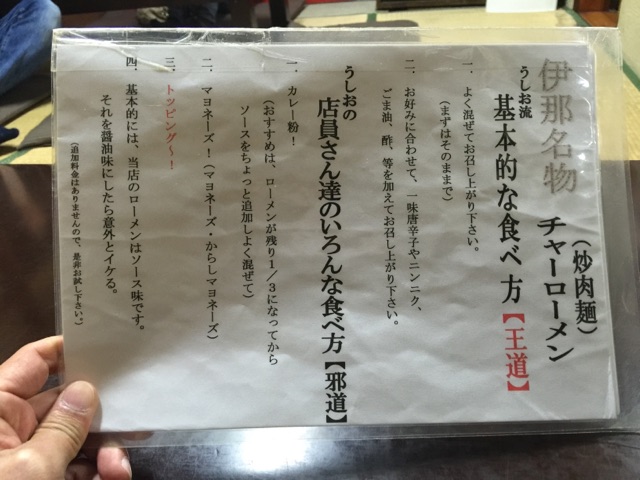 伊那名物 チャーローメン(炒肉麺)
うしお流 基本的な食べ方【王道】
一、よく混ぜてお召し上がり下さい。
(まずはそのままで)
二、お好みに合わせて、一味唐辛子やニンニク、
ごま油、酢、等を加えてお召し上がり下さい。
うしおの 店員さん達のいろんな食べ方【邪道】
一、カレー粉!
(おすすめは、ローメンが残り1/3になってから
ソースをちょっと追加しよく混ぜて)
二、マヨネーズ!(マヨネーズ・からしマヨネーズ)
三、トッピング~!
四、基本的には、当店のローメンはソース味です。
それを醤油味にしたら意外とイケる。
(追加料金はありませんので、是非お試し下さい。)